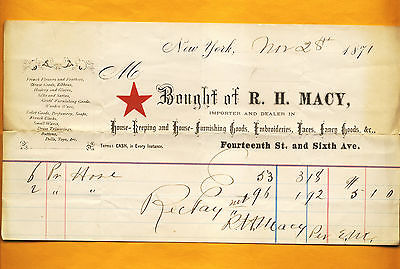 New York, Nov 28th 1871
M
Bought of R. H. MACY,
IMPORTER AND DEALER IN
House-Keeping and House-Furnishing Goods, Embroideries, Laces, Fancy Goods, &c.,
Fourteenth St. and Sixth Ave.
French Flowers and Feathers,
Straw Goods, Ribbons,
Hosiery and Gloves,
Silks and Satins,
Gents' Furnishing Goods,
Worsted Wares,
Toilet Goods, Perfumery, Soaps,
French Goods,
Small Wares,
Dress Trimmings,
Buttons,
Dolls, Toys, &c.
Terms: CASH, in Every Instance.
6 Pr Hose 53 318
2 " " 96 192 5 10
Rec Pay
R H Macy
Per